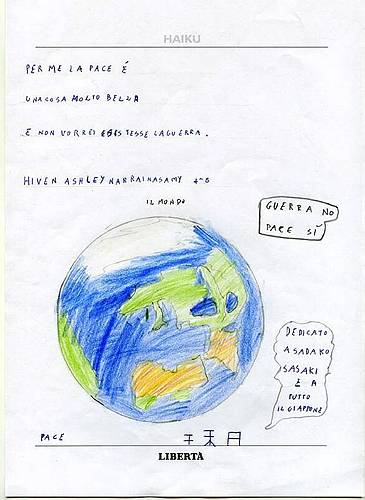 HAIKU
PER ME LA PACE É
UNA COSA MOLTO BELLA
E NON VORREI ESISTESSE LA GUERRA.
HIVEN ASHLEY NARRAINASAMY 4ªB
IL MONDO
GUERRA NO
PACE SÍ
DEDICATO
A SADAKO
SASAKI
E A
TUTTO
IL GIAPPONE
PACE
LIBERTÀ